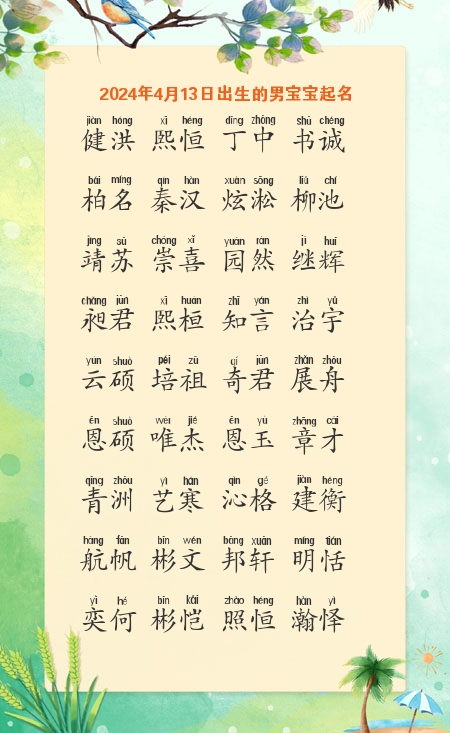 2024年4月13日出生的男宝宝起名
jiàn hóng xī héng dīng zhōng shū chéng
健洪 熙恒 丁中 书诚
bǎi míng qín hàn xuàn sōng liǔ chí
柏名 秦汉 炫淞 柳池
jìng sū chóng xǐ yuán rán jì huī
靖苏 崇喜 园然 继辉
chǎng jūn xī huán zhī yán zhì yǔ
昶君 熙桓 知言 治宇
yún shuò péi zǔ qí jūn zhǎn zhōu
云硕 培祖 奇君 展舟
ēn shuò wéi jié ēn yù zhāng cái
恩硕 唯杰 恩玉 章才
qīng zhōu yì hán qìn gé jiàn héng
青洲 艺寒 沁格 建衡
háng fān bīn wén bāng xuān míng tián
航帆 彬文 邦轩 明恬
yì hé bīn kǎi zhào héng hàn yì
奕何 彬恺 照恒 瀚怿